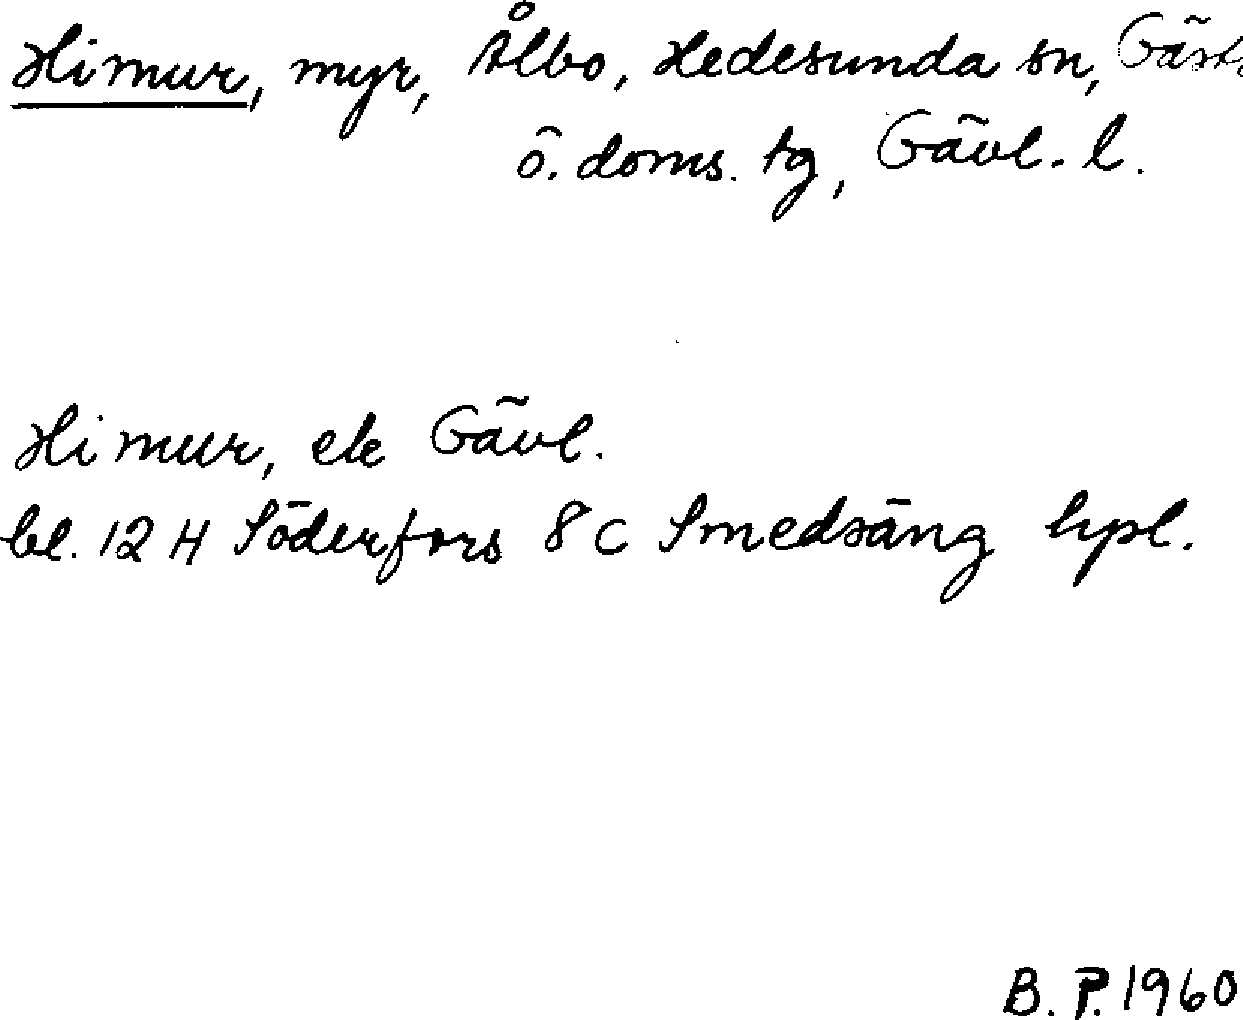 Himur, myr, Ålbo, Hedesunda sn, Gästr.
ö. doms. tg, Gävl. l.
Himur, ek Gävl.
bl. 12 H Söderfors 8 c Smedsäng hpl.
B. P. 1960